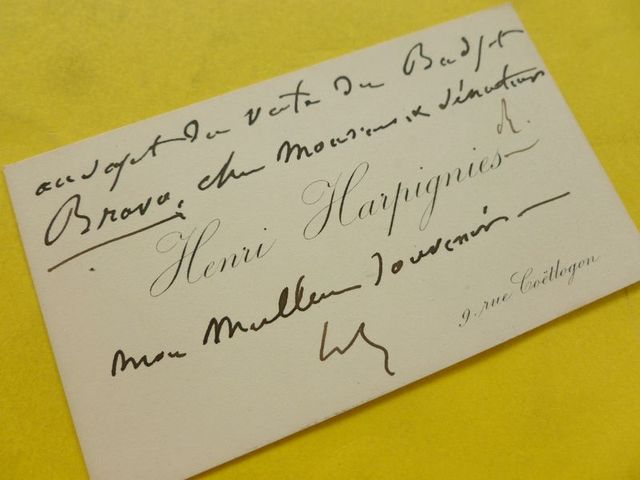 au sujet du vote du Budget
Bravo, cher Monsieur &
Henri Harpignies
Mon Meilleur Souvenir
9, rue Coëtlogon